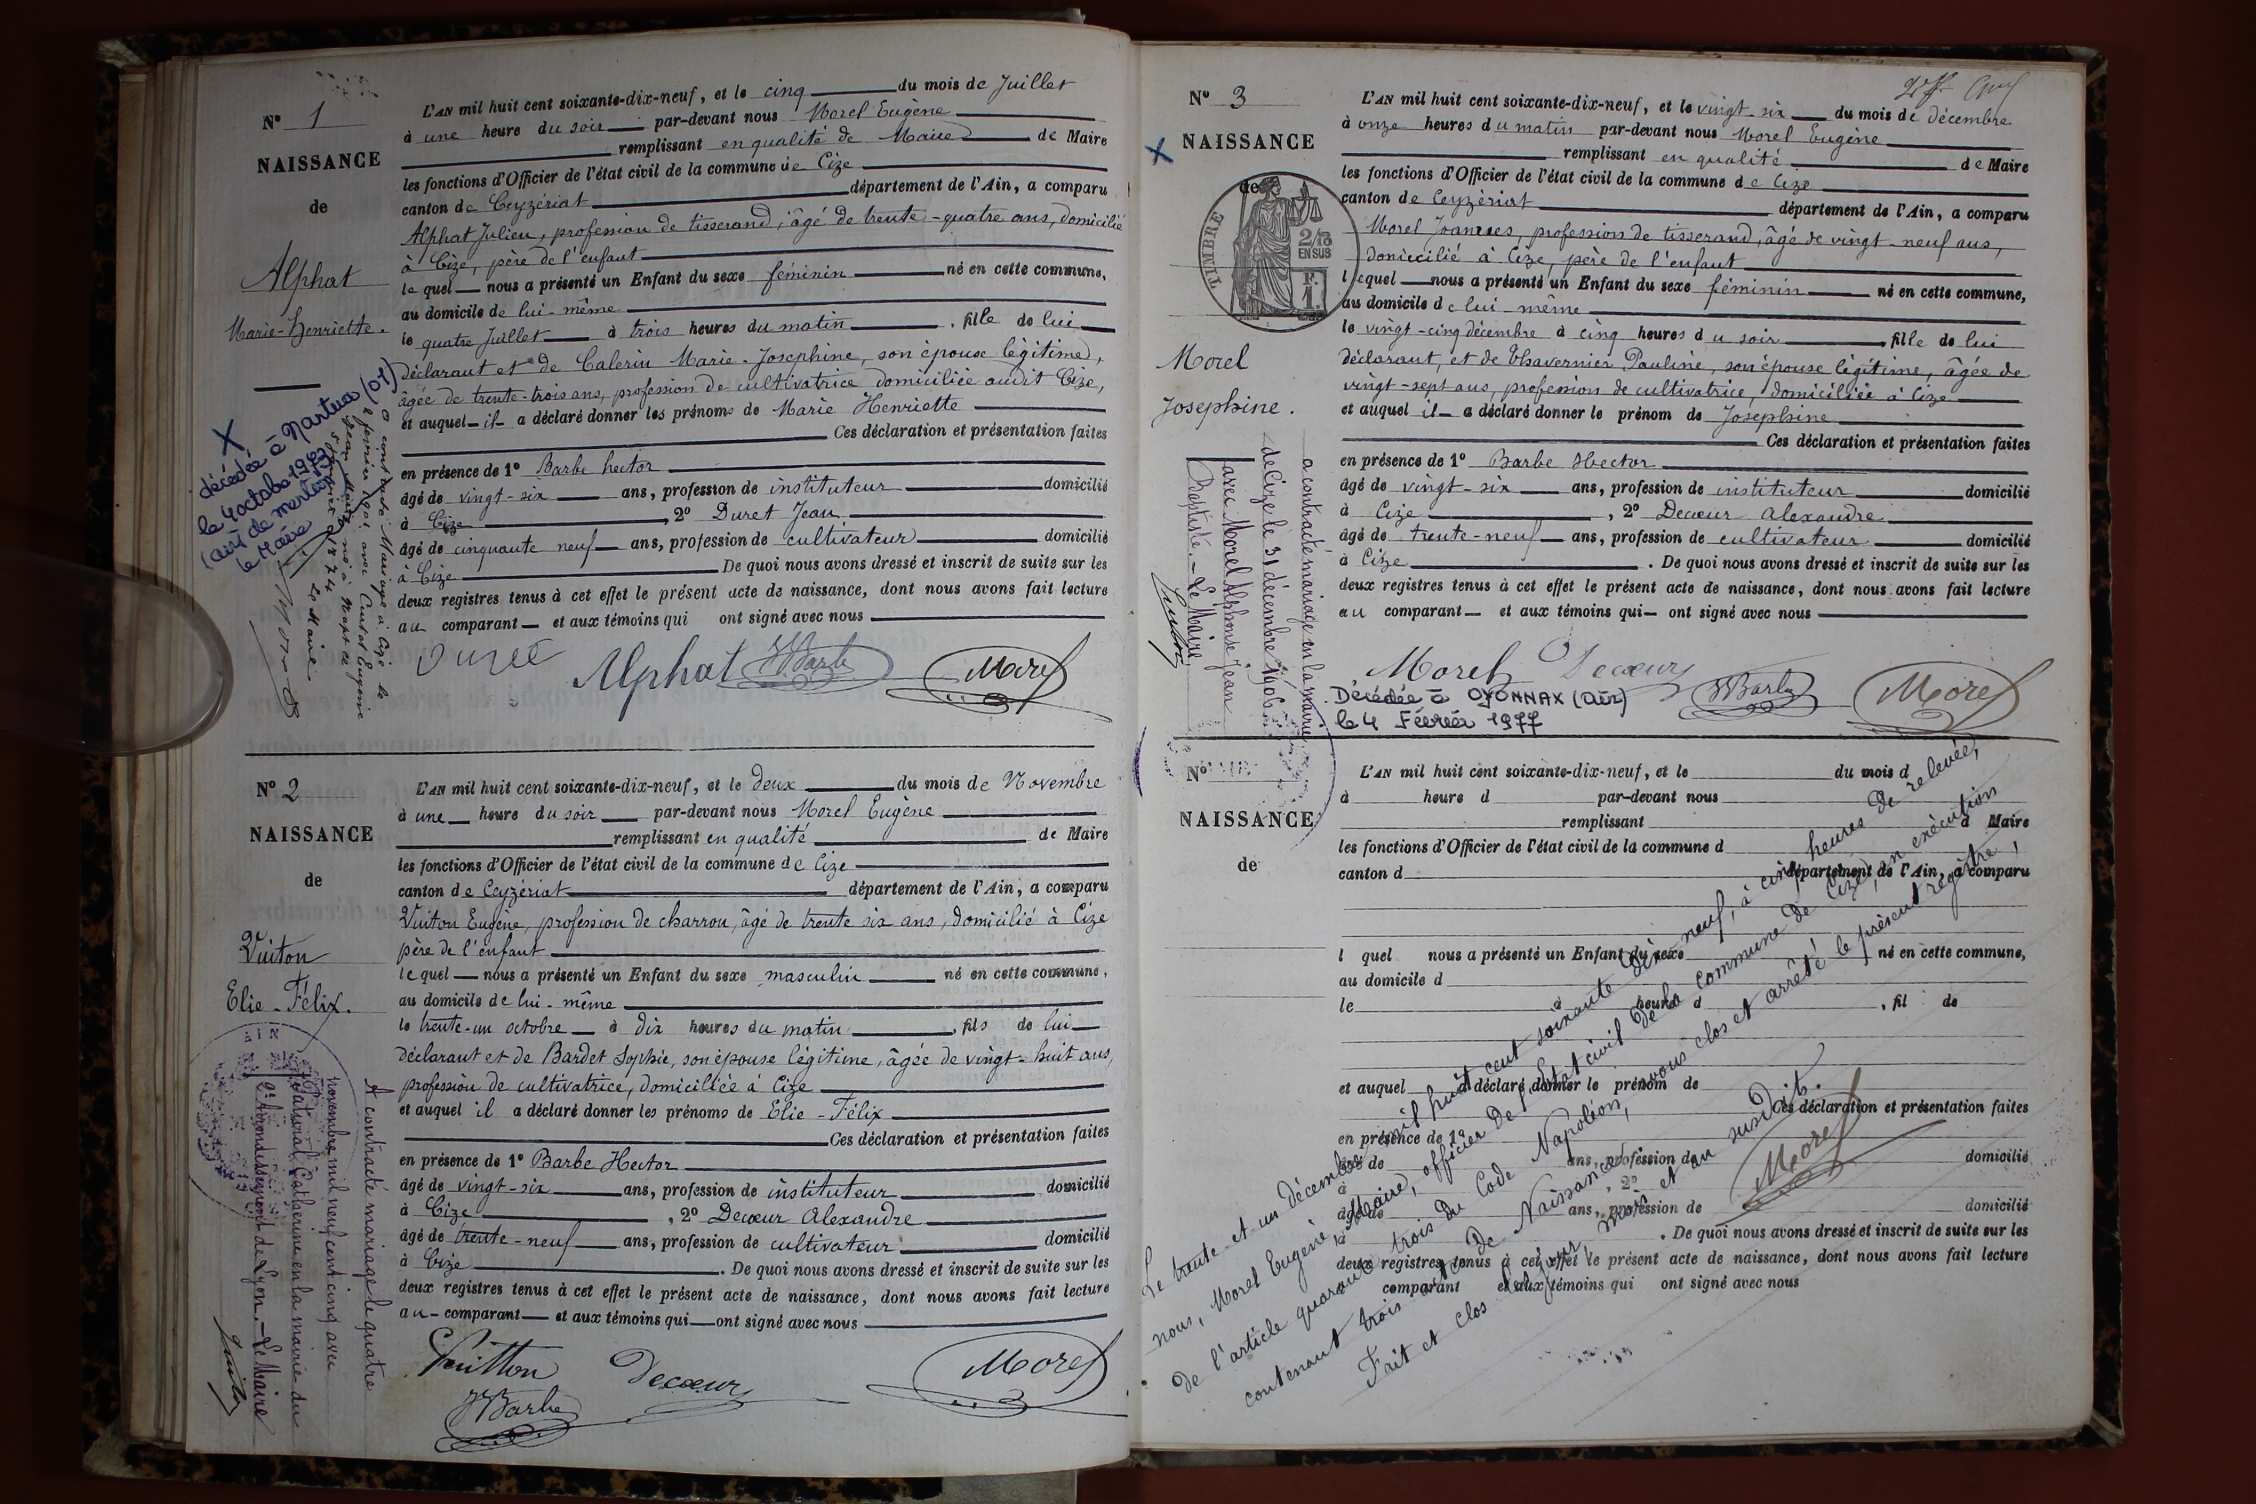 N° 1
NAISSANCE
de
Alphat
Marie-Henriette.
L'AN mil huit cent soixante-dix-neuf, et le cinq du mois de Juillet
à une heure du soir par-devant nous Morel Eugène
remplissant en qualité de Maire de Maire
les fonctions d'Officier de l'état civil de la commune de Cize
canton de Ceyzériat département de l'Ain, a comparu
Alphat Julien, profession de tisserand, âgé de trente-quatre ans, domicilié
à Cize, père de l'enfant
lequel nous a présenté un Enfant du sexe féminin né en cette commune,
au domicile de lui-même
le quatre Juillet à trois heures du matin, fille de lui
déclarant et de Calerin Marie-Josephine, son épouse légitime,
âgée de trente-trois ans, profession de cultivatrice domiciliée audit Cize,
et auquel il a déclaré donner les prénoms de Marie Henriette
Ces déclaration et présentation faites
en présence de 1° Barbe hector
âgé de vingt-six ans, profession de instituteur domicilié
à Cize, 2° Duret Jean
âgé de cinquante neuf ans, profession de cultivateur domicilié
à Cize De quoi nous avons dressé et inscrit de suite sur les
deux registres tenus à cet effet le présent acte de naissance, dont nous avons fait lecture
au comparant et aux témoins qui ont signé avec nous
Alphat HBarbe Morel
X
décédée à Nantua (01)
le 4 octobre 1973
(avis de mention)
le Maire
A contracté Mariage à Cize le
février 1901 avec Eugène
né à
1874
Le Maire
Morel
N° 2
NAISSANCE
de
Vuiton
Elie-Félix.
L'AN mil huit cent soixante-dix-neuf, et le deux du mois de Novembre
à une heure du soir par-devant nous Morel Eugène
remplissant en qualité de Maire
les fonctions d'Officier de l'état civil de la commune de Cize
canton de Ceyzériat département de l'Ain, a comparu
Vuiton Eugène, profession de charron, âgé de trente six ans, domicilié à Cize
père de l'enfant
lequel nous a présenté un Enfant du sexe masculin né en cette commune,
au domicile de lui-même
le trente-un octobre à dix heures du matin, fils de lui
déclarant et de Bardet Sophie, son épouse légitime, âgée de vingt-huit ans,
profession de cultivatrice, domiciliée à Cize
et auquel il a déclaré donner les prénoms de Elie-Félix
Ces déclaration et présentation faites
en présence de 1° Barbe Hector
âgé de vingt-six ans, profession de instituteur domicilié
à Cize, 2° Decœur Alexandre
âgé de trente-neuf ans, profession de cultivateur domicilié
à Cize. De quoi nous avons dressé et inscrit de suite sur les
deux registres tenus à cet effet le présent acte de naissance, dont nous avons fait lecture
au comparant et aux témoins qui ont signé avec nous
Vuitton Decœur Morel
HBarbe
A contracté mariage le quatre
novembre mil neuf cent cinq avec
Catherine en la mairie du
2e Arrondissement de Lyon. - Le Maire
N° 3
NAISSANCE
de
X
TIMBRE
2/10
EN SUS
F.
1.
Morel
Josephine.
L'AN mil huit cent soixante-dix-neuf, et le vingt-six du mois de décembre
à onze heures du matin par-devant nous Morel Eugène
remplissant en qualité de Maire
les fonctions d'Officier de l'état civil de la commune de Cize
canton de Ceyzériat département de l'Ain, a comparu
Morel Joannes, profession de tisserand, âgé de vingt-neuf ans,
Domicilié à Cize, père de l'enfant
lequel nous a présenté un Enfant du sexe féminin né en cette commune,
au domicile de lui même
le vingt-cinq décembre à cinq heures du soir, fille de lui
déclarant, et de Thavernier Pauline, son épouse légitime, âgée de
vingt-sept ans, profession de cultivatrice, domiciliée à Cize
et auquel il a déclaré donner le prénom de Josephine
Ces déclaration et présentation faites
en présence de 1° Barbe Hector
âgé de vingt-six ans, profession de instituteur domicilié
à Cize, 2° Decœur Alexandre
âgé de trente-neuf ans, profession de cultivateur domicilié
à Cize. De quoi nous avons dressé et inscrit de suite sur les
deux registres tenus à cet effet le présent acte de naissance, dont nous avons fait lecture
au comparant et aux témoins qui ont signé avec nous
Morel Decœur HBarbe Morel
Décédée à OYONNAX (Ain)
le 4 Février 1977
a contracté mariage en la mairie
de Cize le 31 décembre 1906
avec Morel Alphonse Jean
Baptiste. - Le Maire
N°
NAISSANCE
de
L'AN mil huit cent soixante-dix-neuf, et le du mois d
à heure d par-devant nous
remplissant d Maire
les fonctions d'Officier de l'état civil de la commune d
canton d département de l'Ain, a comparu
l quel nous a présenté un Enfant du sexe né en cette commune,
au domicile d
le à heure d, fil de
et auquel a déclaré donner le prénom de
Ces déclaration et présentation faites
en présence de 1°
âgé de ans, profession de domicilié
à, 2°
âgé de ans, profession de domicilié
à. De quoi nous avons dressé et inscrit de suite sur les
deux registres tenus à cet effet le présent acte de naissance, dont nous avons fait lecture
comparant et aux témoins qui ont signé avec nous
Le trente-et-un décembre mil huit cent soixante dix-neuf, à cinq heures de relevée,
nous, Morel Eugène, Maire, officier de l'état civil de la commune de Cize, en exécution
de l'article quarante trois du Code Napoléon, avons clos et arrêté le présent registre,
contenant trois actes de Naissance
Fait et clos les jour, mois et an susdit.
Morel